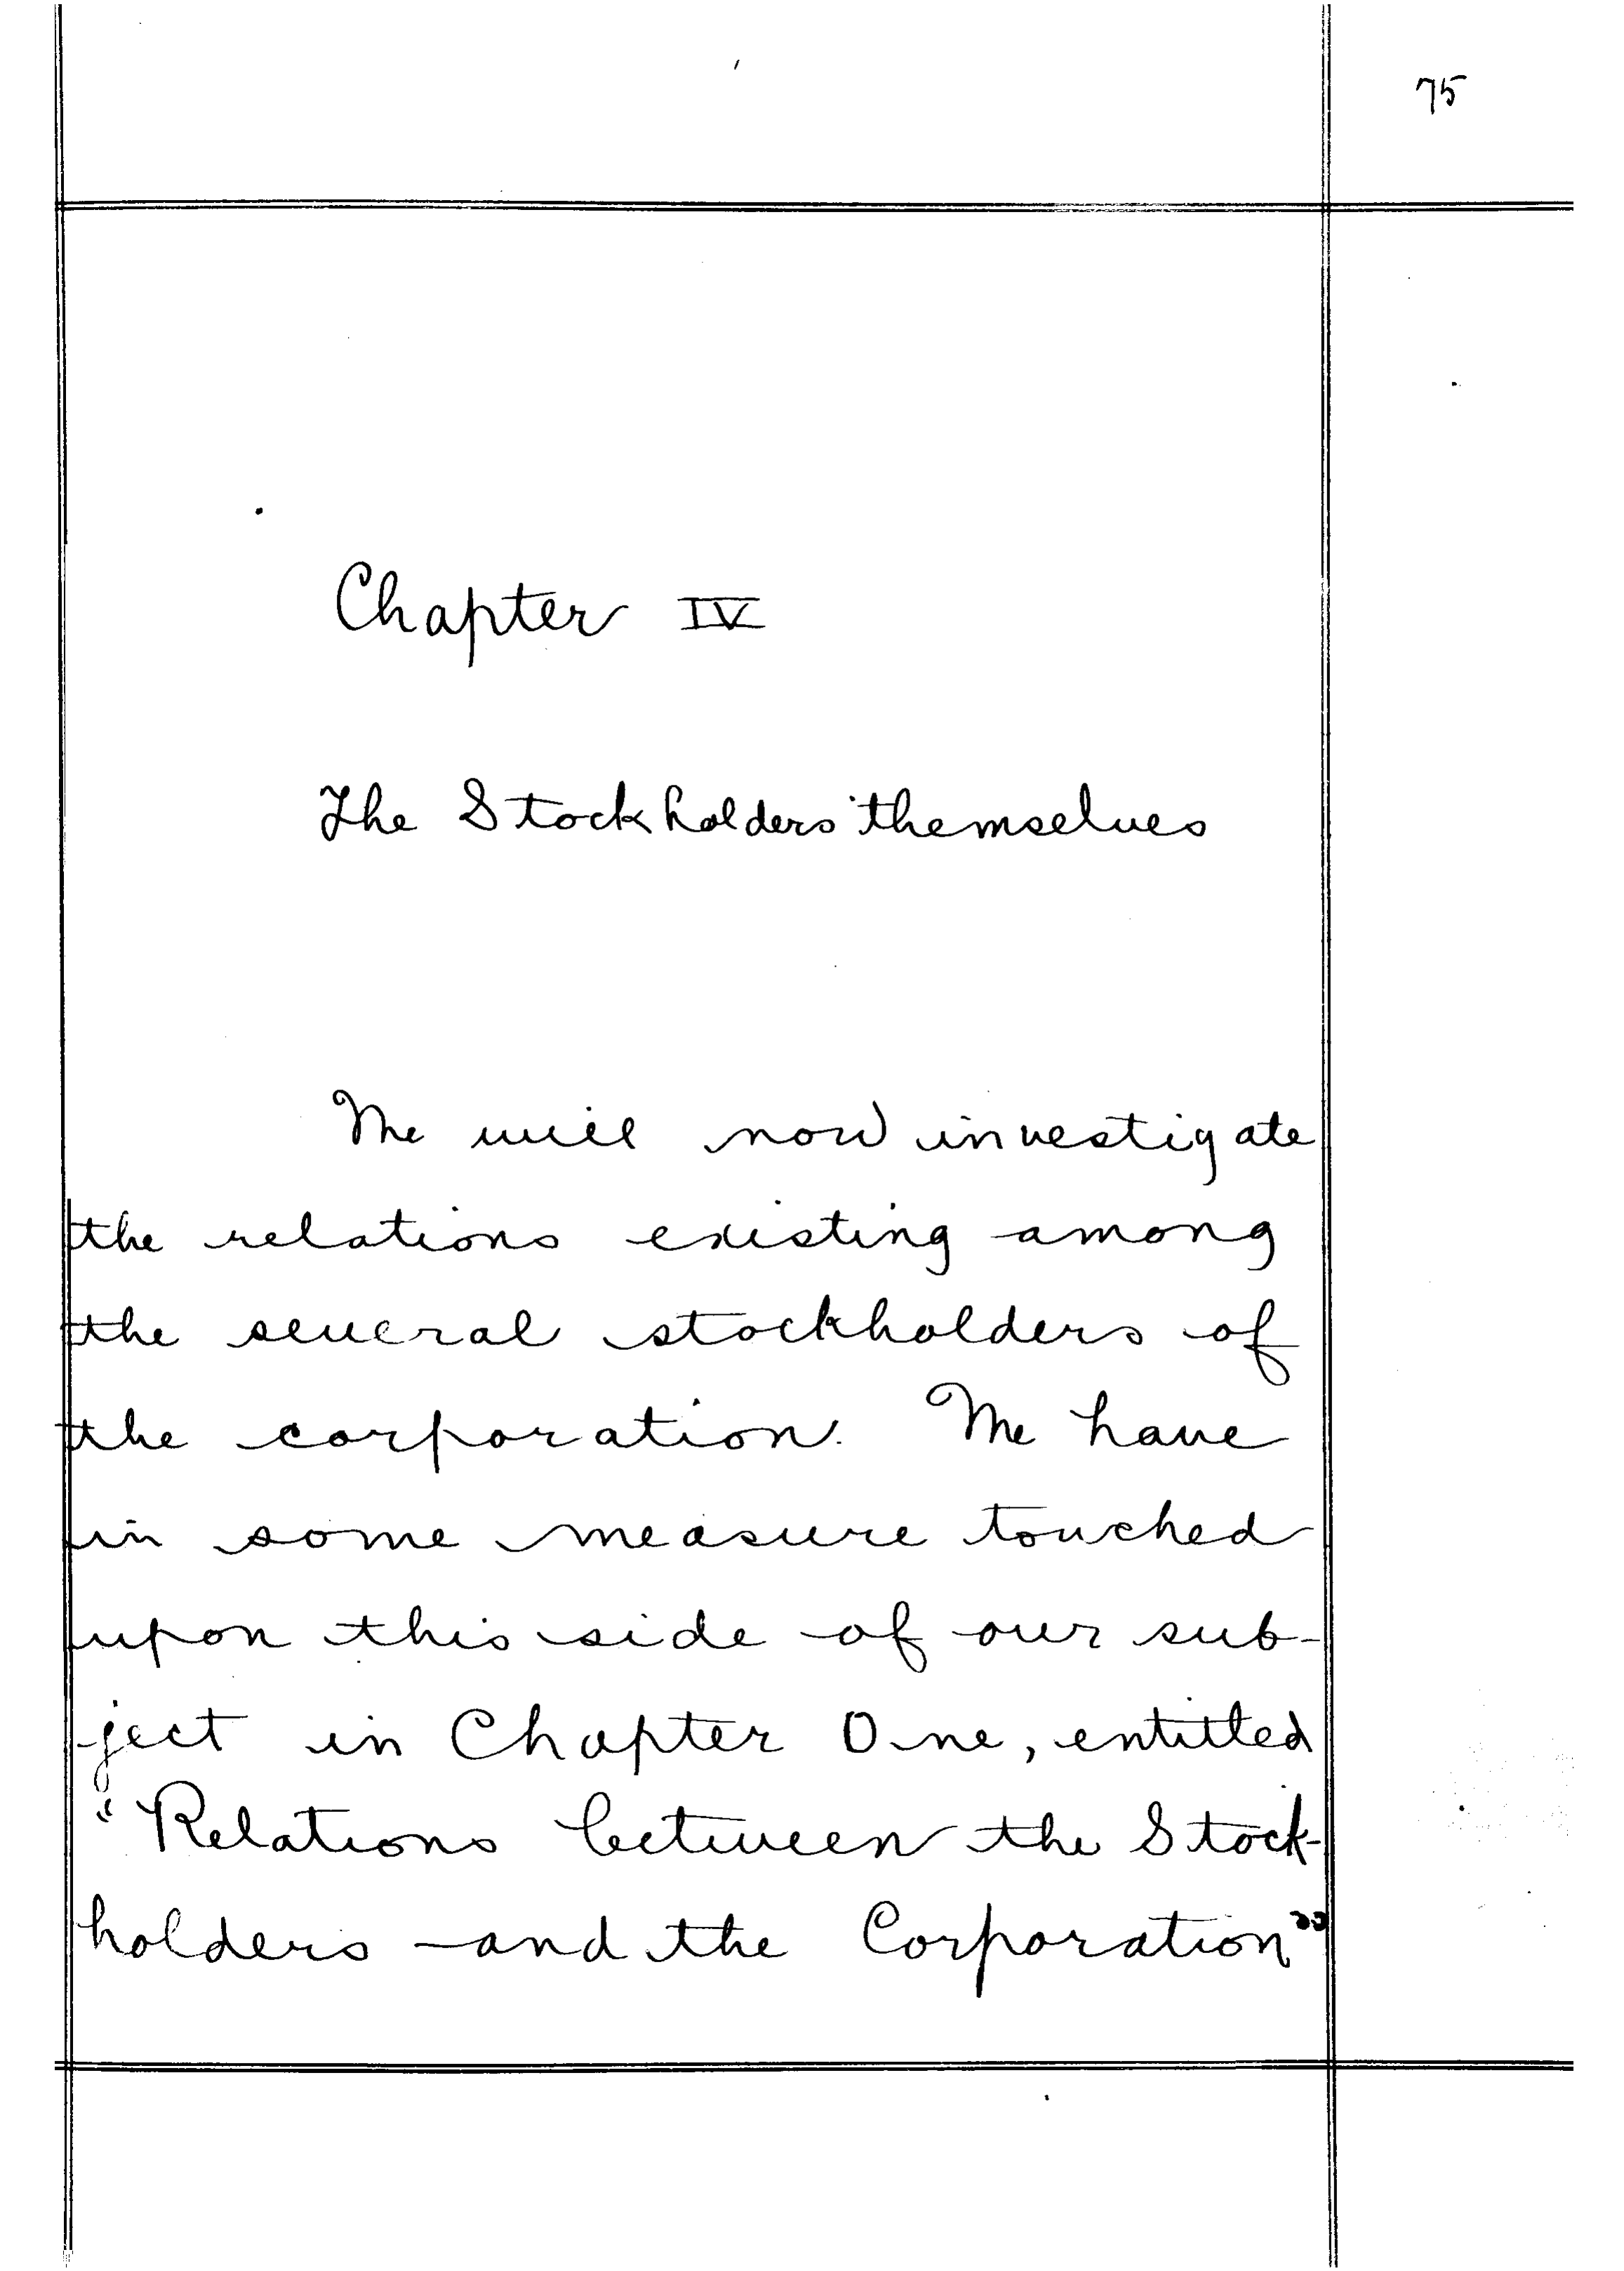 75
Chapter IV
The Stockholders themselves
We will now investigate
the relations existing among
the several stockholders of
the corporation. We have
in some measure touched
upon this side of our sub-
ject in Chapter One, entitled
"Relations between the Stock-
holders and the Corporation"